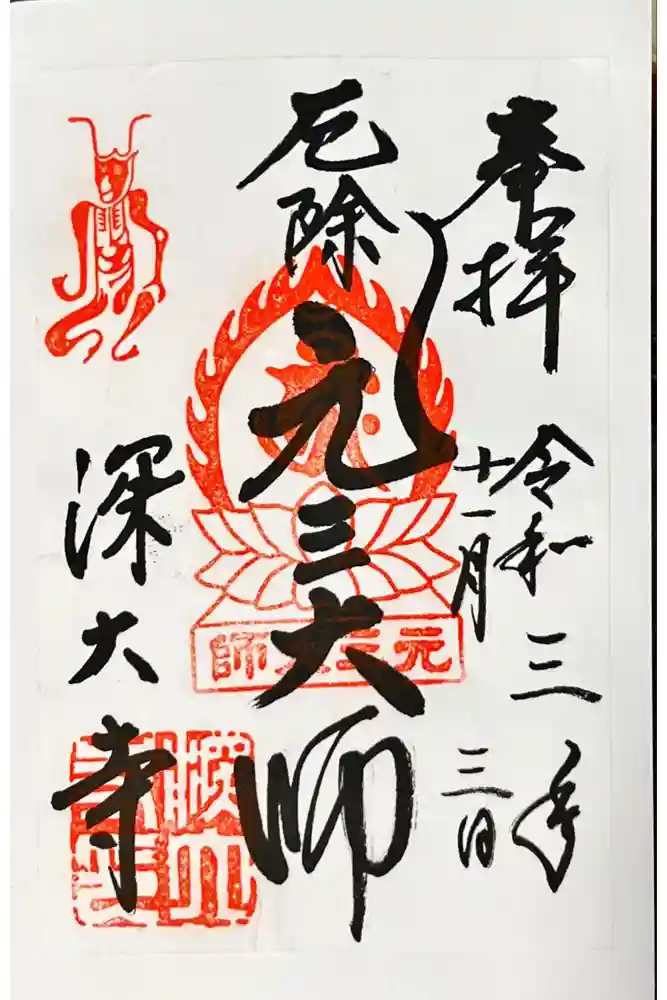 奉拝
令和三年
十一月三日
厄除
元三大師
深大寺
元三大師